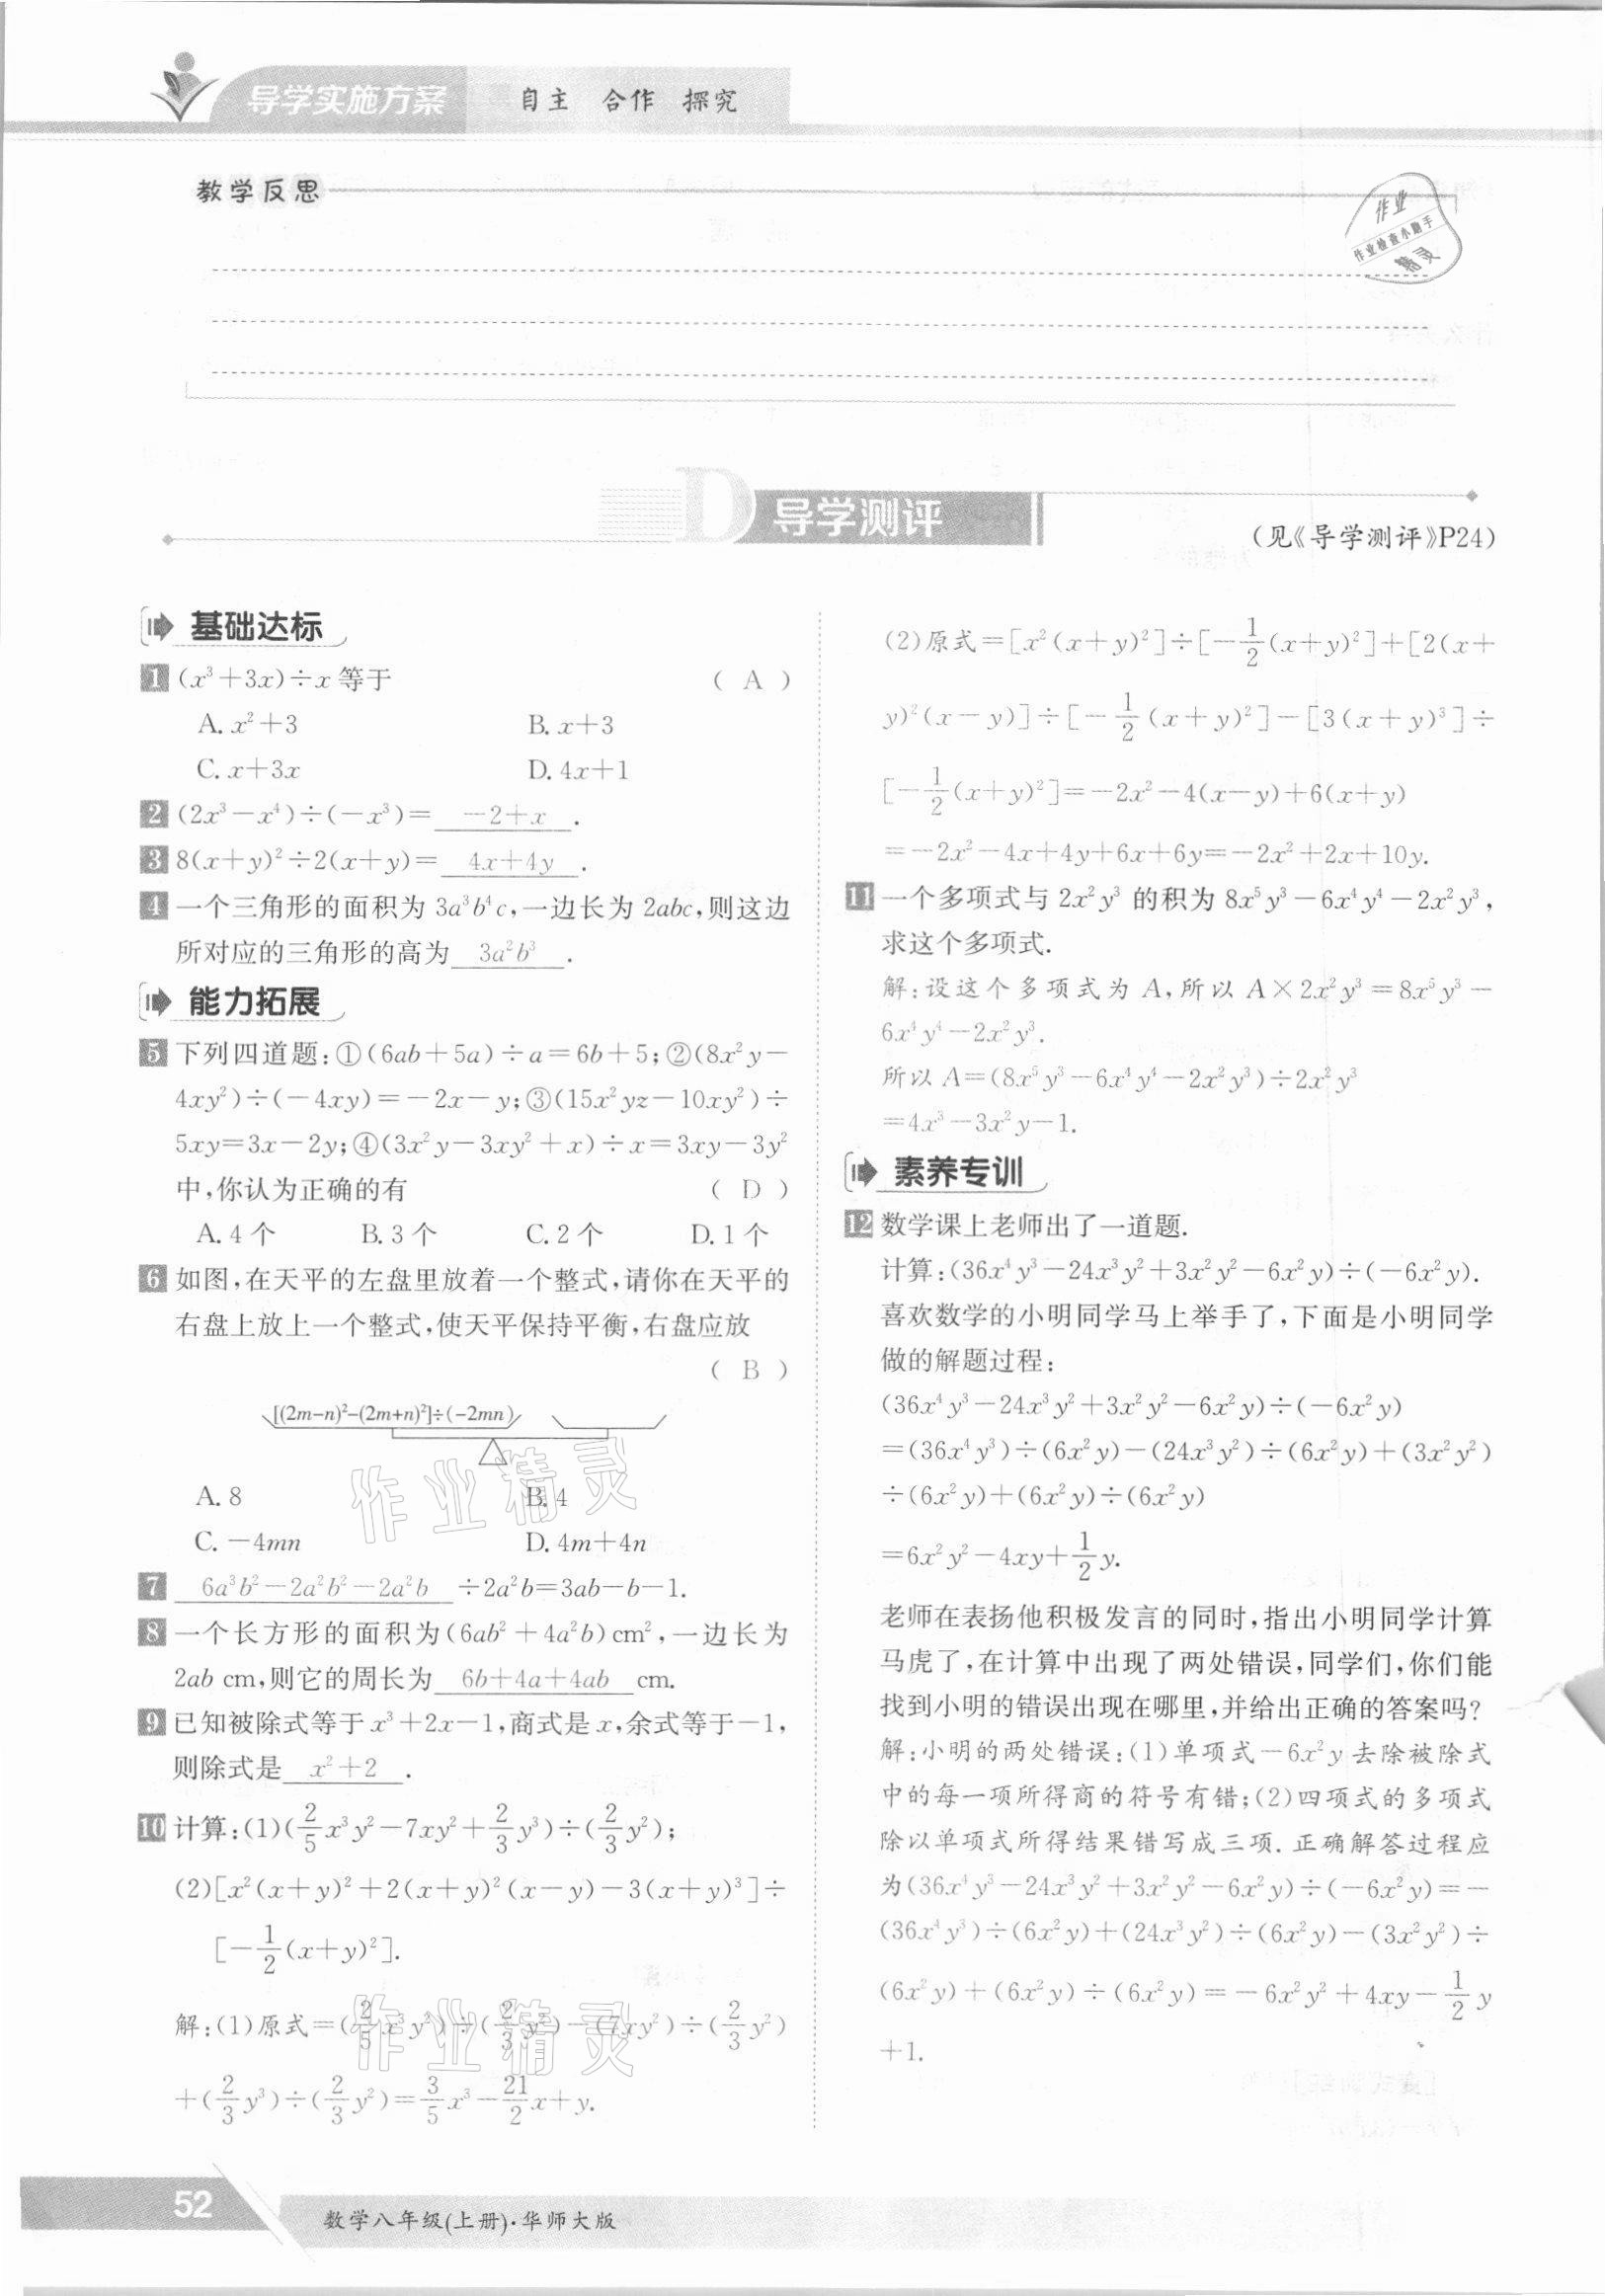 导学实施方案 自主 合作 探究
教学反思
作业
作业检查小助手
精灵
D 导学测评
(见《导学测评》P24)
基础达标
1 (x³+3x)÷x等于 ( A )
A. x²+3 B. x+3
C. x+3x D. 4x+1
2 (2x³-x⁴)÷(-x³)= -2+x .
3 8(x+y)²÷2(x+y)= 4x+4y .
4 一个三角形的面积为3a³b⁴c,一边长为2abc,则这边
所对应的三角形的高为 3a²b³ .
能力拓展
5 下列四道题:①(6ab+5a)÷a=6b+5;②(8x²y-
4xy²)÷(-4xy)=-2x-y;③(15x²yz-10xy²)÷
5xy=3x-2y;④(3x²y-3xy²+x)÷x=3xy-3y²
中,你认为正确的有 ( D )
A. 4个 B. 3个 C. 2个 D. 1个
6 如图,在天平的左盘里放着一个整式,请你在天平的
右盘上放上一个整式,使天平保持平衡,右盘应放
( B )
[(2m-n)²-(2m+n)²]÷(-2mn)
A. 8 B. 4
C. -4mn D. 4m+4n
作业精灵
7 6a³b²-2a²b²-2a²b ÷2a²b=3ab-b-1.
8 一个长方形的面积为(6ab²+4a²b)cm²,一边长为
2ab cm,则它的周长为 6b+4a+4ab cm.
9 已知被除式等于x³+2x-1,商式是x,余式等于-1,
则除式是 x²+2 .
10 计算:(1)(2/5x³y²-7xy²+2/3y³)÷(2/3y²);
(2)[x²(x+y)²+2(x+y)²(x-y)-3(x+y)³]÷
[-1/2(x+y)²].
解:(1)原式=(2/5x³y²)÷(2/3y²)-(7xy²)÷(2/3y²)
+(2/3y³)÷(2/3y²)=3/5x³-21/2x+y.
作业精灵
(2)原式=[x²(x+y)²]÷[-1/2(x+y)²]+[2(x+
y)²(x-y)]÷[-1/2(x+y)²]-[3(x+y)³]÷
[-1/2(x+y)²]=-2x²-4(x-y)+6(x+y)
=-2x²-4x+4y+6x+6y=-2x²+2x+10y.
11 一个多项式与2x²y³的积为8x⁵y³-6x⁴y⁴-2x²y³,
求这个多项式.
解:设这个多项式为A,所以A×2x²y³=8x⁵y³-
6x⁴y⁴-2x²y³.
所以A=(8x⁵y³-6x⁴y⁴-2x²y³)÷2x²y³
=4x³-3x²y-1.
素养专训
12 数学课上老师出了一道题.
计算:(36x⁴y³-24x³y²+3x²y²-6x²y)÷(-6x²y).
喜欢数学的小明同学马上举手了,下面是小明同学
做的解题过程:
(36x⁴y³-24x³y²+3x²y²-6x²y)÷(-6x²y)
=(36x⁴y³)÷(6x²y)-(24x³y²)÷(6x²y)+(3x²y²)
÷(6x²y)+(6x²y)÷(6x²y)
=6x²y²-4xy+1/2y.
老师在表扬他积极发言的同时,指出小明同学计算
马虎了,在计算中出现了两处错误,同学们,你们能
找到小明的错误出现在哪里,并给出正确的答案吗?
解:小明的两处错误:(1)单项式-6x²y去除被除式
中的每一项所得商的符号有错;(2)四项式的多项式
除以单项式所得结果错写成三项.正确解答过程应
为(36x⁴y³-24x³y²+3x²y²-6x²y)÷(-6x²y)=-
(36x⁴y³)÷(6x²y)+(24x³y²)÷(6x²y)-(3x²y²)÷
(6x²y)+(6x²y)÷(6x²y)=-6x²y²+4xy-1/2y
+1.
52
数学八年级(上册)·华师大版